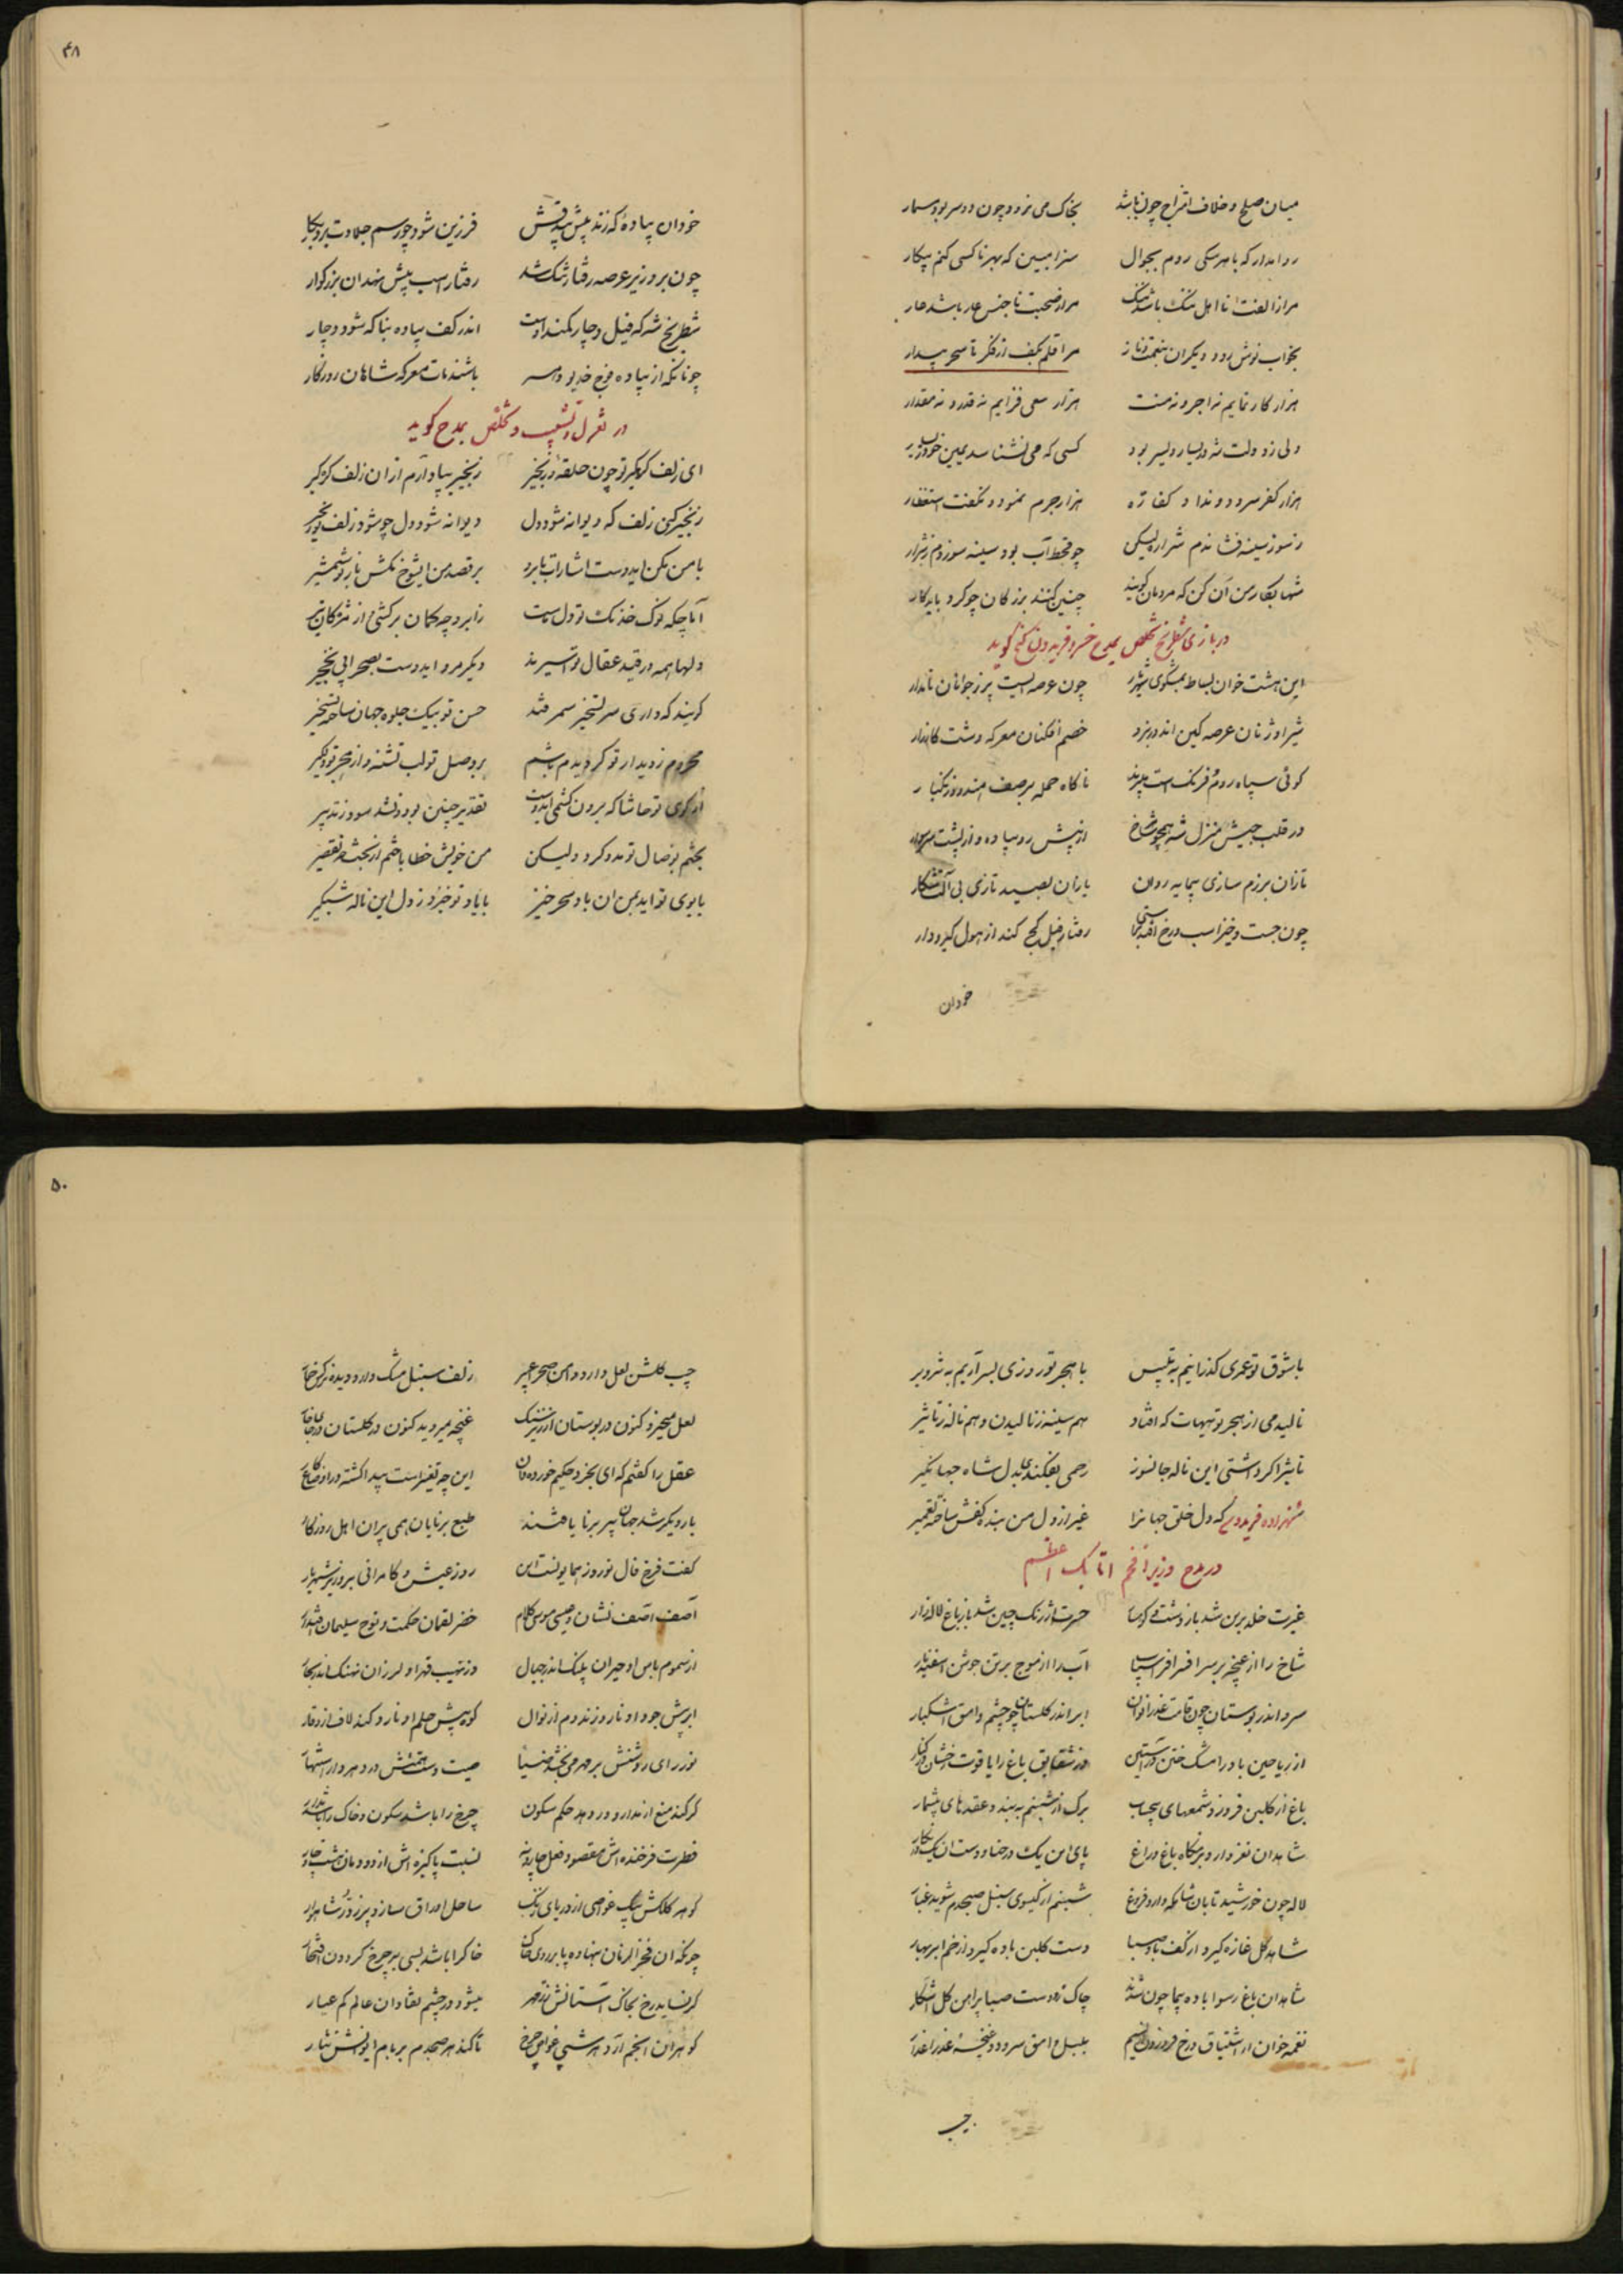 میان صلح و خلاف امتزاج چون باشد بخاک می نرود چون دو سر بود مسمار
روا مدار که با هر سکی روم بجوال سزا مبین که بهر ناکسی کنم پیکار
مرا ز الفت نا اهل ننگ باشد ننگ مرا ز صحبت ناجنس عار باشد عار
بخواب نوش رود دیکران بنعمت و ناز مرا قلم بکف از فکر تا سحر بیدار
هزار کار نمایم نه اجر و نه منت هزار سعی فزایم نه قدر و نه مقدار
ولی ز دولت شه در یسار و یسر بود کسی که می نشناسد یمین خود ز یسار
هزار کفر سرود و نداد کفاره هزار جرم نمود و نکفت استغفار
ز سوز سینه فشاندم شراره لیکن چو قحط آب بود سینه سوزدم ز شرار
شها بکار من آن کن که مردمان کویند چنین کنند بزرکان چو کرد باید کار
در بازی شطرنج تخلص بمدح خسرو فریدون کنج کوید
این هشت خوان بساط شهریار چون عرصه ایست پر ز جوانان نامدار
شیر اوژنان عرصه کین اندر نبرد خصم افکنان معرکه دشت کارزار
کوئی سپاه روم و فرنک است ناکاه حمله بر صف هند و زنکبار
در قلب جیش منزل شه همچو شاه رخ از پیش رو پیاده و از پشت سر سوار
تازان برزم سازی یاران بصید تازی بی آلت شکار
چون جست و خیز اسب و رخ رفتار فیل کج کند از هول کیر و دار
خود آن
۴۸
خود آن پیاده که زند پیش بیدقش فرزین شود چو رسم جلادت برد بکار
چون برد زیر عرصه رفتار تنک شد رفتار اسب پیش نهد آن بزرکوار
شطرنج شه که فیل دچار کمند اوست اندر کف پیاده بناکه شود دچار
چونانکه از پیاده فوج خدیو دهر باشند مات معرکه شاهان روزکار
در تغزل و تشبیب و تخلص بمدح کوید
ای زلف کرهکیر تو چون حلقه زنجیر زنجیر بپا دارم از آن زلف کرهکیر
زنجیر کن زلف که دیوانه شود دل دیوانه شود دل چو شود زلف تو زنجیر
با من مکن ایدوست اشارات بابرو بر قصد من ایشوخ مکش باز تو شمشیر
آماجکه نوک خدنک تو دل ماست ز ابرو چه کمان برکشی از مژکان تیر
دلها همه در قید عقال تو اسیرند دیکر مرو ایدوست بصحرا پی نخجیر
کویند که داری سر تسخیر سمرقند حسن تو بیک جلوه جهان ساخته تسخیر
محروم ز دیدار تو کردیدم و باشم بر وصل تو لب تشنه و از هجر تو دلکیر
از کوی تو حاشا که برون کشمی ایدوست تقدیر چنین بود و نشد سود ز تدبیر
بختم بوصال تو مدد کرد ولیکن من خویش خطا باختم از بخت نه تقصیر
با بوی تو اید بمن ان باد سحر خیز با یاد تو خیزد ز دل این ناله شبکیر
با شوق تو عمری کذرانیم به تلبیس با هجر تو روزی بسر آریم به تزویر
نالیدمی از هجر تو هیهات که افتاد هم سینه ز نالیدن و هم ناله ز تاثیر
تاثیر اکر داشتی این ناله جانسوز رحمی بفکندی بدل شاه جهانکیر
شهزاده فریدون که دل خلق جهانرا غیر از دل من بنده کفش ساخته تعمیر
در مدح وزیر افخم اتابک اعظم
غیرت خلد برین شد باز دشت و کوهسار حسرت ارژنک چین شد باز باغ و لاله زار
شاخ را از غنچه بر سر افسر افراسیاب آب را از موج بر تن جوشن اسفندیار
سرو اندر بوستان چون قامت عذرا نوان ابر اندر کلستان چون چشم وامق اشکبار
از ریاحین باد را مشک ختن در آستین وز شقایق باغ را یاقوت رخشان در کنار
باغ از کلبن فروزد شمعهای بیحساب برک از شبنم به بندد عقدهای بیشمار
شاهدان نغز دارد بزمکاه باغ و راغ پای این یک در حنا و دست ان یک در نکار
لاله چون خورشید تابان شامکه دارد فروغ شبنم از کیسوی سنبل صبحدم شوید غبار
شاهد کل غازه کیرد از کف باد صبا دست کلبن باده کیرد از خم ابر بهار
شاهدان باغ رسوا باده پیما چون شدند چاک زد دست صبا پیراهن کل آشکار
نغمه خوان از اشتیاق و رخ فروزد از نسیم بلبل وامق سرود و غنچه عذرا عذار
چب
۵۰
چب کلشن لعل دارد دامن صحرا عبیر زلف سنبل مشک دارد دیده نرکس خمار
لعل میخیزد کنون در بوستان از زیر سنک غنچه میروید کنون در کلستان بر جای خار
عقل را کفتم که ای بخرد حکیم خورده دان این چه تغییر است پیدا کشته در اوضاع کار
بار دیکر شد جهان پیر برنا یافتند طبع برنایان همی پیران اهل روزکار
کفت فرخ فال نوروز همایونست این روز عیش و کامرانی بر وزیر شهریار
آصف آصف نشان و عیسی موسی کلام خضر لقمان حکمت و نوح سلیمان اقتدار
از سموم باس او حیران پلنک اندر جبال وز نهیب قهر او لرزان نهنک اندر بحار
ابر پیش جود او نارد زند دم از نوال کوه پیش حلم او نارد کند لاف از وقار
نور رای روشنش بر مهر می بخشد ضیا صیت دست همتش در دهر دارد اشتهار
کر کند منع از مدار و ور دهد حکم سکون چرخ را باشد سکون و خاک را باشد مدار
فطرت فرخنده اش مقصود فعل چار و نه نسبت پاکیزه اش از دودمان هشت و چار
کوهر کلکش بیک غواصی از دریای مشک ساحل اوراق سازد پر ز در شاهوار
چونکه ان فخر الزمان بنهاده پا بر روی خاک خاک را باشد بسی بر چرخ کردون افتخار
کر نساید رخ بخاک آستانش زر مهر میشود در چشم نقادان عالم کم عیار
کوهران انجم آرد هر شبی غواص چرخ تا کند هر صبحدم بر بام ایوانش نثار